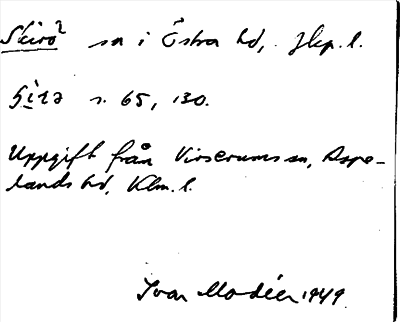 Skirö sn i Östra hd, Jkp. l.
s. 65, 130.
Uppgift från Virserums sn, Aspe-
lands hd, Klm. l.
Ivar Modéer 1949.